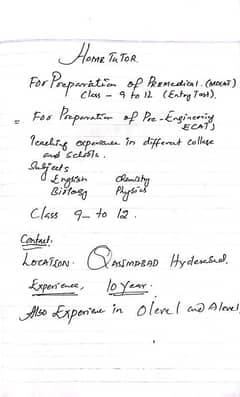 HOME TUTOR
For Preparation of Premedical. (MDCAT)
Class - 9 to 12 (Entry Test).
= For Preparation of Pre-Engineering
ECAT)
Teaching experience in different college
and schools.
Subjects
English Chemistry
Biology Physics
Class 9 - to 12.
Contact.
LOCATION. QASIMABAD Hyderabad.
Experience, 10 year.
Also Experience in O level and A level